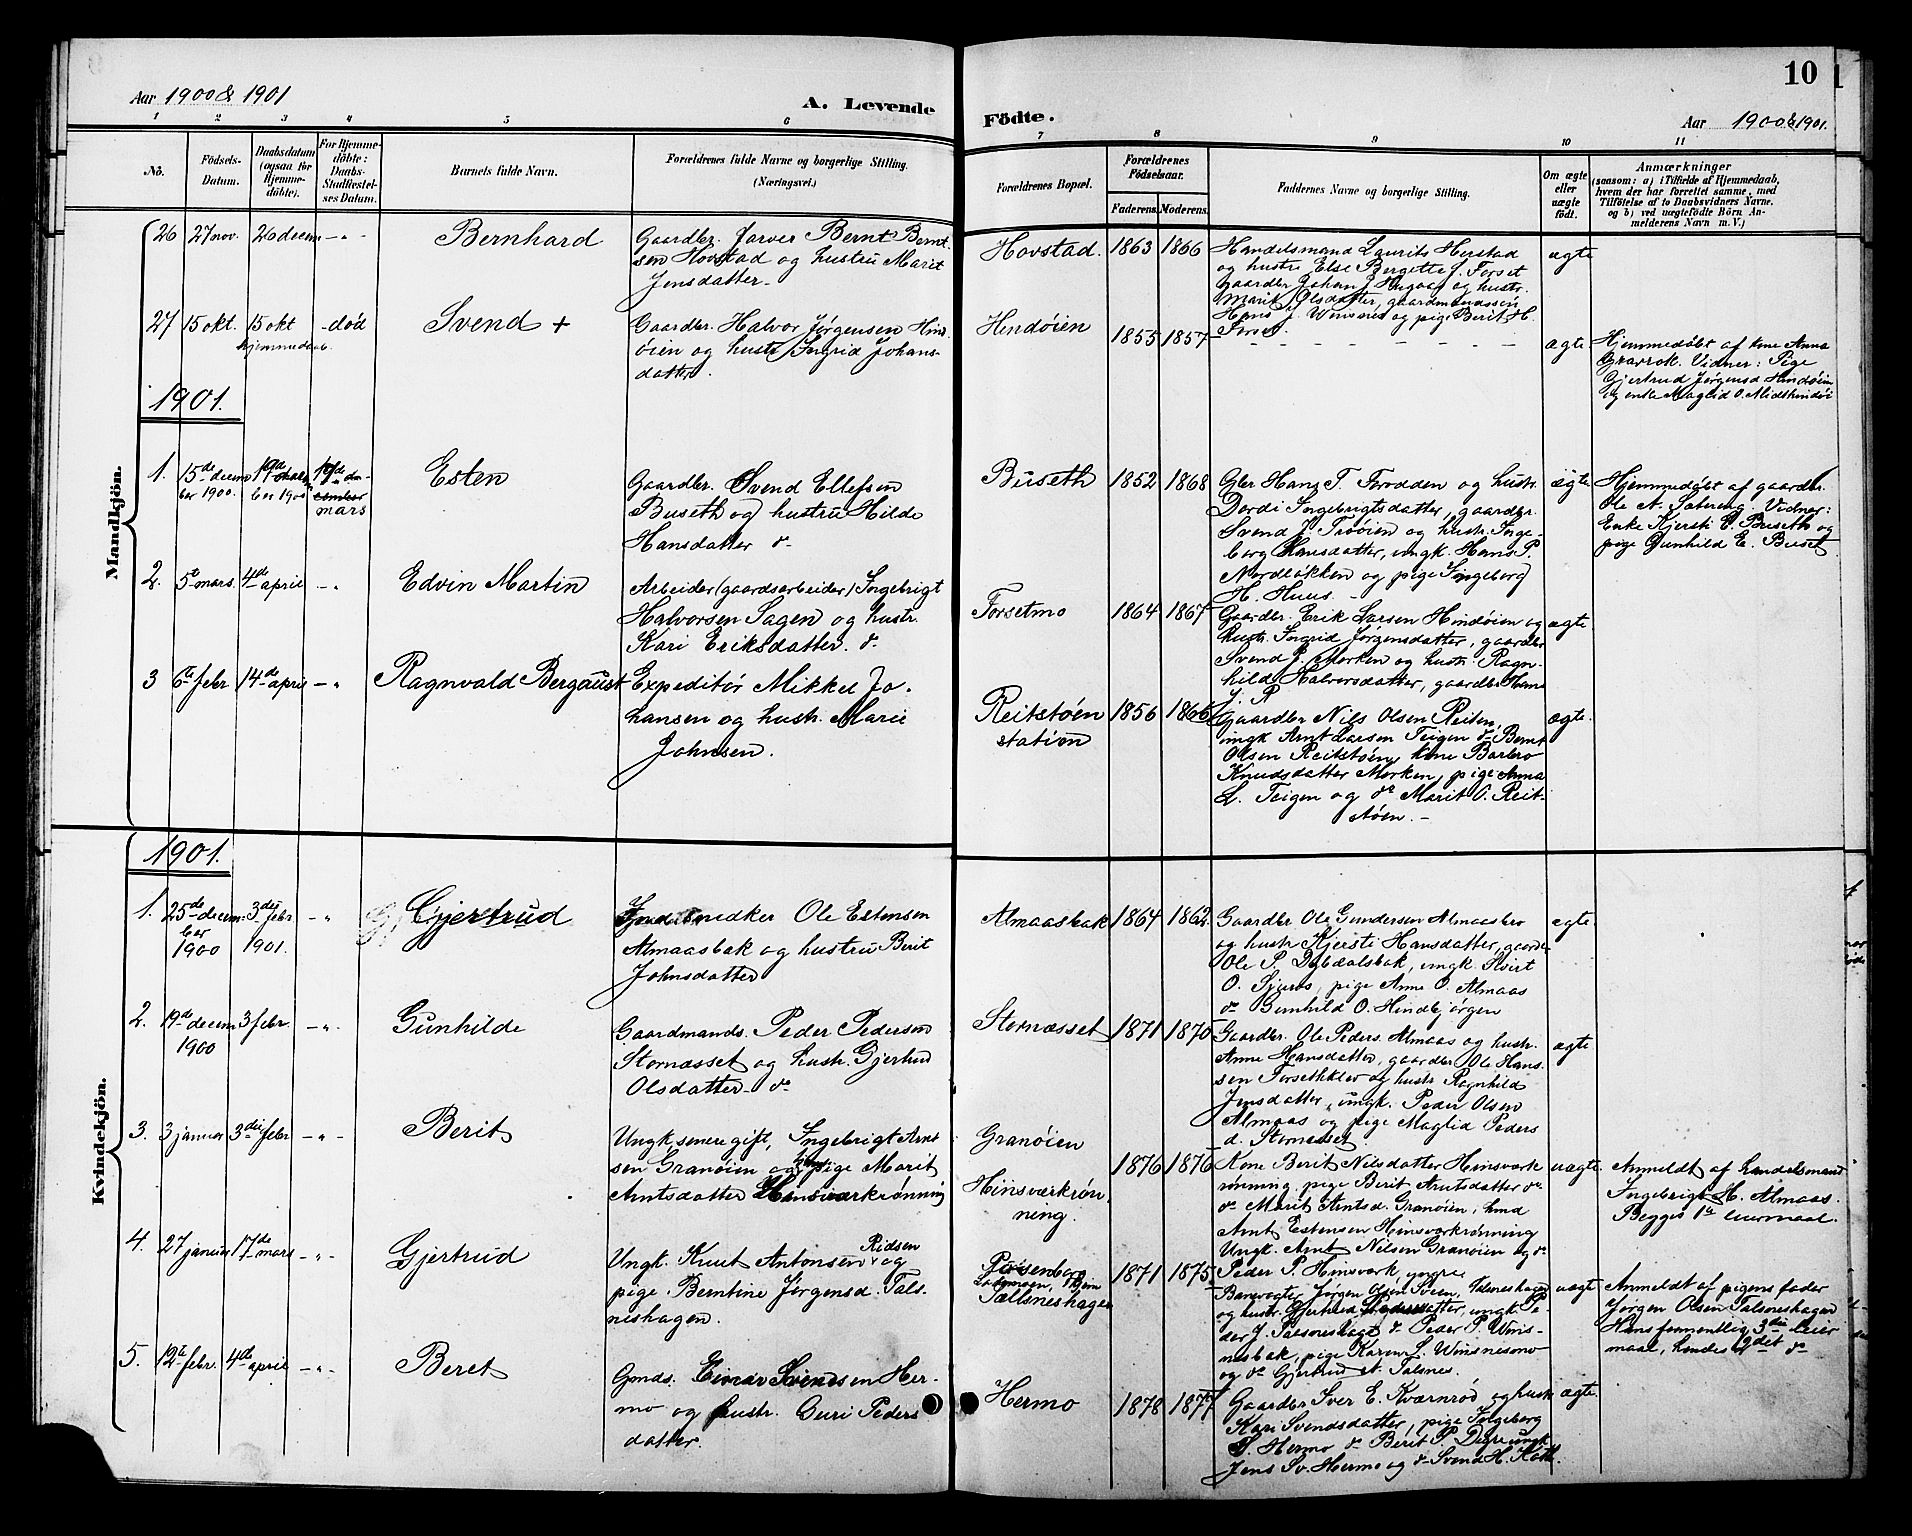 10
Aar 1900 & 1901
A. Levende
Födte.
Aar 1900 & 1901.
1 2 3 4 5 6 7 8 9 10 11
No.
Födsels-
Datum.
Daabsdatum
(ogsaa for
Hjemme-
döbte).
For Hjemme-
döbte:
Daabs-
Stadfæstel-
ses Datum.
Barnets fulde Navn.
Forældrenes fulde Navne og borgerlige Stilling.
(Næringsvei.)
Forældrenes Bopæl.
Forældrenes
Födselsaar.
Faderens. Moderens.
Faddernes Navne og borgerlige Stilling.
Om ægte
eller
uægte
födt.
Anmærkninger
(saasom: a) i Tilfælde af Hjemmedaab,
hvem der har forrettet samme, med
Tilföielse af to Daabsvidners Navne,
og b) ved uægtefödte Börn An-
melderens Navn m. V.)
Mandkjön.
26
27 nov.
26 decem
- " -
Bernhard
Gaardbr. Farver Bernt Bernt
sen Hovstad og hustru Marit
Jensdatter
Hovstad.
1863
1866
Handelsmand Laurits Herstad
og hustru Else Bergette J. Forset
Gaardbr Johan J. og hustr.
Marit Olsdatter, gaardmandssøn
Hans J. Winsnes og pige Berit H.
Forset.
ægte
27
15 okt.
15 okt
hjemmedaab.
- død
Svend +
Gaardbr. Halvor Jørgensen Hind
øien og hustr Ingrid Johans-
datter.
Hindøien
1855
1857
ægte
Hjemmedøbt af kone Anna
Vidner: Pige
Gjertrud Jørgensd Hindøien
og enke Maglid O. Midthindøi
1901.
1.
15de decem
ber 1900.
ber 1900
mars
Esten
Gaardbr. Svend Ellefsen
Buseth og hustru Hilde
Hansdatter d-
Buseth
1852
1868
Gbr Hans T. Frodden og hustr.
Dordi Ingebrigtsdatter, gaardbr.
Svend J. Trøøien og hustr. Inge-
berg Hansdatter, ungk. Hans P.
Nordløkken og pige Ingeborg
H. Huus. -
ægte
Hjemmedøbt af gaardbr.
Ole A. Sætereng. Vidner:
Enke Kjersti E. Buseth og
pige Gunhild E. Buset
2.
5te mars.
4de april
- "
Edvin Martin
Arbeider (gaardsarbeider) Ingebrigt
Halvorsen Sagen og hustr.
Kari Eriksdatter. d-
Forsetmo
1864
1867
Gaardbr. Erik Larsen Hindøien og
hustr. Ingrid Jørgensdatter, gaardbr
Svend J. Morken og hustr. Ragn-
hild Halvorsdatter, gaardbr Hans
J. R
ægte
3
6te febr
14de april
- "
Ragnvald Bergaust
Expeditør Mikkel Jo-
hansen og hustr. Marie
Johnsen.
Reitstøen
station
1856
1866
Gaardbr Nils Olsen Reiten,
ungk Arnt Larsen Teigen do Bernt
Olsen Reitstøen, kone Barbro
Knudsdatter Morken, pige Anna
L. Teigen og do Marit O. Reit-
støen. -
ægte
Kvindekjön.
1901.
1.
25de decem
ber
1900
3die febr
1901.
- "
Gjertrud
snedker Ole Estensen
Almaasbak og hustru Berit
Johnsdatter
Almaasbak
1864
1862
Gaardbr Ole Gundersen Almaasbro
og hustr Kjersti Hansdatter, gaardbr
Ole P. Dybdalsbak, ungk. Sivert
O. Sjuros, pige Anne O. Almaas
do Gunhild O. Hindbjørgen
ægte
2.
19de decem
1900
3 febr.
- "
Gunhilde
Gaardmands. Peder Pedersen
Stornæsset og hustr. Gjertrud
Olsdatter d-
Stornæsset
1871
1870
Gaardbr. Ole Peders. Almaas og hustr.
Anne Hansdatter, gaardbr Ole Hans-
sen Forsethklev og hustr Ragnhild
Jensdatter, ungk. Peder Olsen
Almaas og pige Maglid Peders
d. Stornæsset
ægte
3.
3 januar
3die febr
- " -
Berit
Ungk, senere gift, Ingebrigt Arnt
sen Granøien og pige Marit
Arntsdatter Hinsværkrønning
Granøien
Hinsværkrøn
ning.
1876
1876
Kone Berit Nilsdatter Hinsværk
rønning, pige Berit Arntsdatter do
do Marit Arntsd. Granøien, hmd
Arnt Estensen Hinsværkrønning
Ungk. Arnt Nilsen Granøien og do
Peder P. Hinsværk, yngre
uægte
Anmeldt af handelsmand
Ingebrigt H. Almaas.
Begges 1ste leiermaal.
4.
27 januar
17de mars
- "
Gjertrud
Ungk. Knut Antonsen Ridsen og
pige Berntine Jørgensd. Tals-
neshagen.
Rosenborg
Tallsneshagen
1871
1875
Banevogter Jørgen Olsen Sveen, Talsneshagen
og hustr. Gjertrud Pedersdatter, ungk Pe-
der J. Talsneshagen do Peder P. Wins-
nesbak, pige Karen L. Winsnesmo
og do Gjertrud A. Talsnes.
uægte
Anmeldt af pigens fader
Jørgen Olsen Talsneshagen
Hans formentlig 3die leier
maal, hendes 2det do
5.
12te febr.
4de april
- "
Beret
Gmds. Einar Svendsen Her-
mo og hustr. Guri Peders
datter.
Hermo
1878
1877
Gaardbr Iver E. Kværnrød og hustr.
Kari Svendsdatter, pige Ingeborg
S. Hermo do Berit P. Digre ungk
Jens Sv. Hermo og do Svend H. Kotte.
ægte.